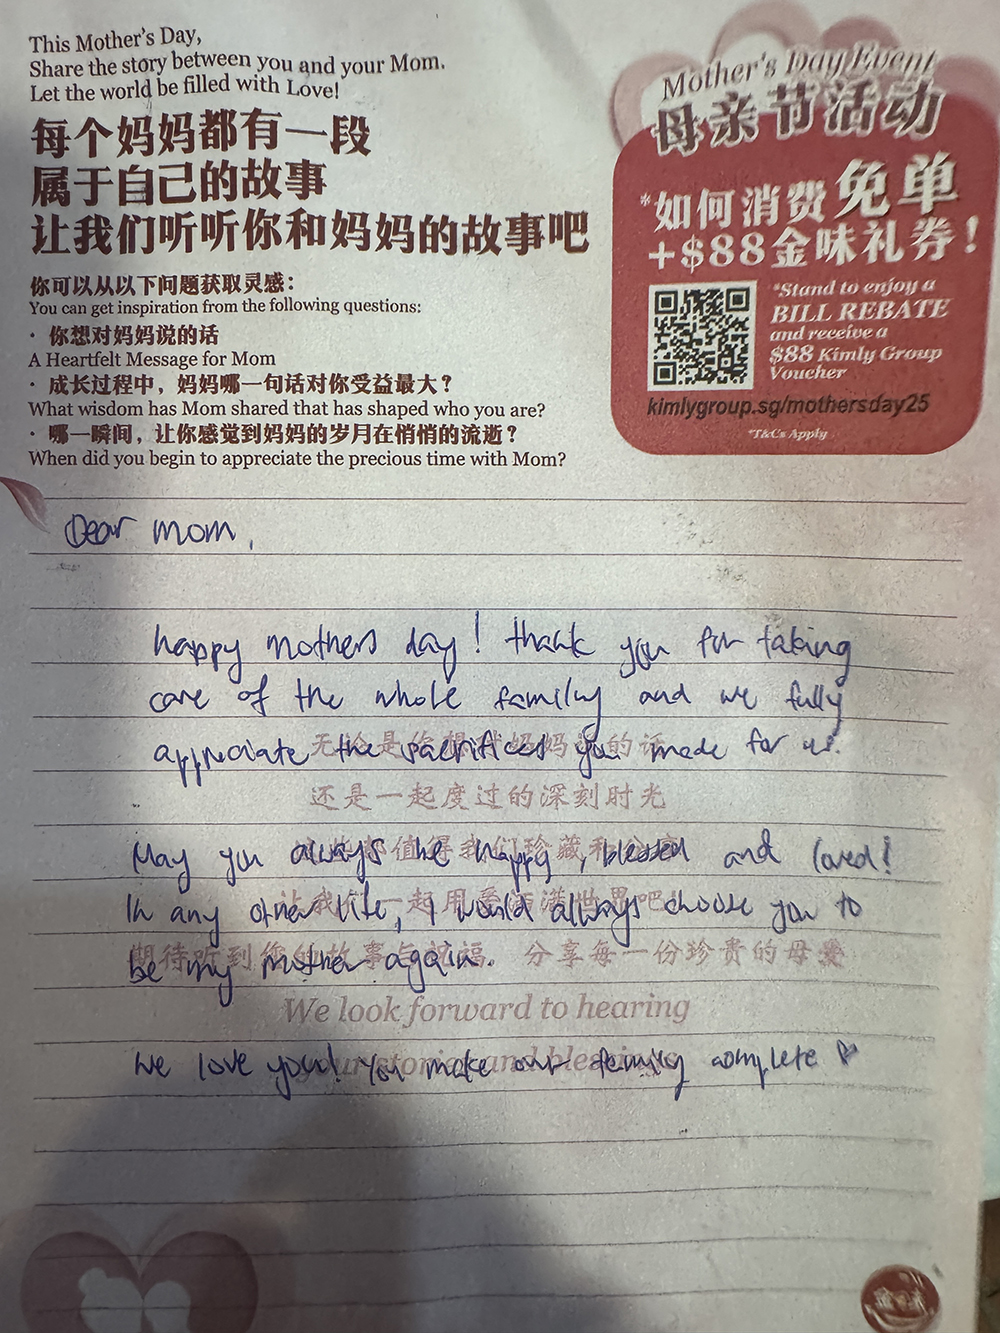 This Mother's Day,
Share the story between you and your Mom.
Let the world be filled with Love!
每个妈妈都有一段
属于自己的故事
让我们听听你和妈妈的故事吧
你可以从以下问题获取灵感：
You can get inspiration from the following questions:
· 你想对妈妈说的话
A Heartfelt Message for Mom
· 成长过程中，妈妈哪一句话对你受益最大？
What wisdom has Mom shared that has shaped who you are?
· 哪一瞬间，让你感觉到妈妈的岁月在悄悄的流逝？
When did you begin to appreciate the precious time with Mom?
Mother's Day Event
母亲节活动
*如何消费免单
+$88金味礼券！
*Stand to enjoy a
BILL REBATE
and receive a
$88 Kimly Group
Voucher
kimlygroup.sg/mothersday25
*T&Cs Apply
Dear mom,
happy mothers day! thank you for taking
care of the whole family and we fully
appreciate the sacrifices you made for us.
无论是你想对妈妈说的话
还是一起度过的深刻时光
May you always be happy, blessed and loved!
值得我们珍藏和
In any other life, I would always choose you to
让我们一起用爱洒满世界吧
be my mother again.
期待听到您的故事与祝福。分享每一份珍贵的母爱
We look forward to hearing
we love you! You make our family complete ♡
your stories and blessings